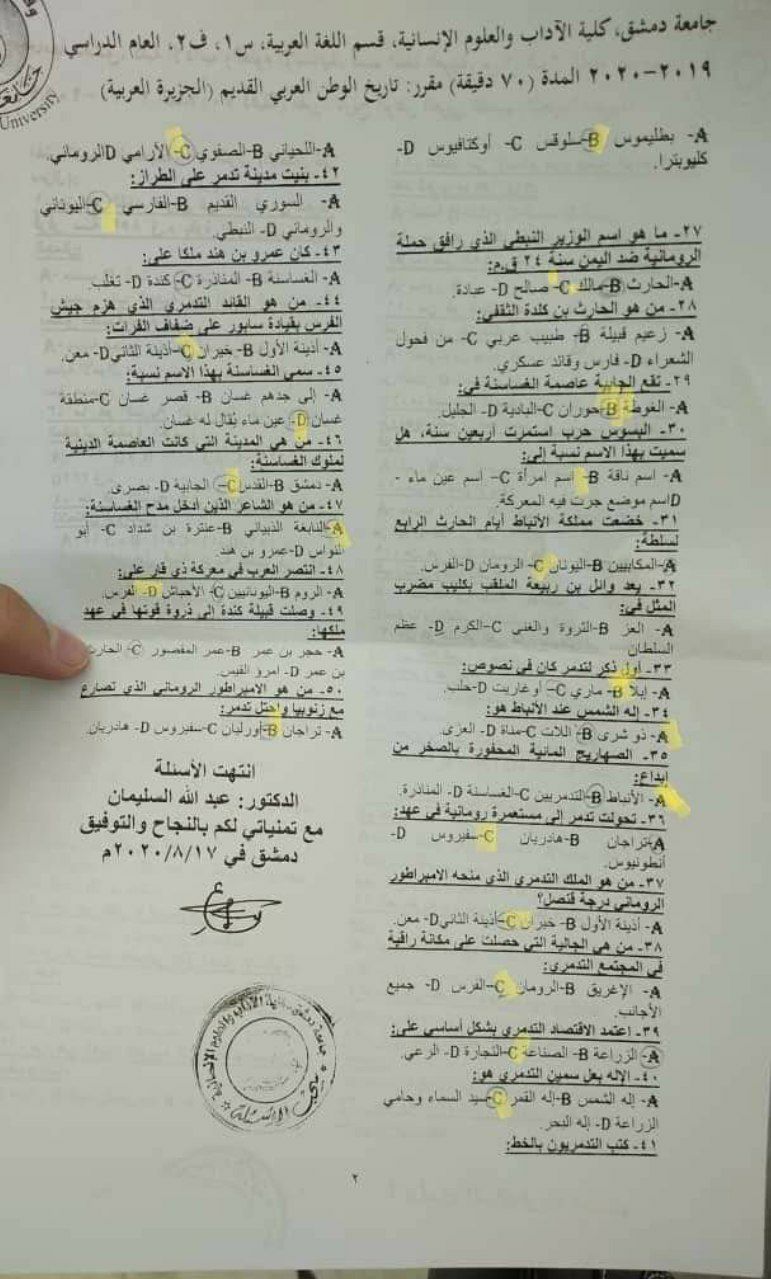 جامعة دمشق، كلية الآداب والعلوم الإنسانية، قسم اللغة العربية، س١، ف٢، العام الدراسي
٢٠١٩-٢٠٢٠ المدة (٧٠ دقيقة) مقرر: تاريخ الوطن العربي القديم (الجزيرة العربية)
A- بطليموس B-سلوقس C- أوكتافيوس D-
كليوبترا.
٢٧- ما هو اسم الوزير النبطي الذي رافق حملة
الرومانية ضد اليمن سنة ٢٤ ق.م:
A-الحارث B-مالك C- صالح D- عبادة.
٢٨- من هو الحارث بن كلدة الثقفي:
A- زعيم قبيلة B- طبيب عربي C- من فحول
الشعراء D- فارس وقائد عسكري.
٢٩- تقع الجابية عاصمة الغساسنة في:
A- الغوطة B-حوران C-البادية D- الجليل.
٣٠- البسوس حرب استمرت أربعين سنة، هل
سميت بهذا الاسم نسبة إلى:
A- اسم ناقة B-اسم امرأة C- اسم عين ماء -
Dاسم موضع جرت فيه المعركة.
٣١- خضعت مملكة الأنباط أيام الحارث الرابع
لسلطة:
A-المكابيين B-اليونان C- الرومان D-الفرس.
٣٢- يعد وائل بن ربيعة الملقب بكليب مضرب
المثل في:
A- العز B-الثروة والغنى C-الكرم D- عظم
السلطان
٣٣- أول ذكر لتدمر كان في نصوص:
A- إبلا B- ماري C- أوغاريت D-حلب.
٣٤- إله الشمس عند الأنباط هو:
A-ذو شرى B- اللات C-مناة D- العزى.
٣٥- الصهاريج المائية المحفورة بالصخر من
إبداع:
A- الأنباط B-التدمريين C-الغساسنة D- المناذرة.
٣٦- تحولت تدمر إلى مستعمرة رومانية في عهد:
A-تراجان B-هادريان C-سفيروس D-
أنطونيوس.
٣٧- من هو الملك التدمري الذي منحه الامبراطور
الروماني درجة قنصل؟
A- أذينة الأول B- خيران C-أذينة الثاني D- معن.
٣٨- من هي الجالية التي حصلت على مكانة راقية
في المجتمع التدمري:
A- الإغريق B-الرومان C-الفرس D- جميع
الأجانب.
٣٩- اعتمد الاقتصاد التدمري بشكل أساسي على:
A-الزراعة B- الصناعة C-التجارة D- الرعي.
٤٠- الإله بعل سمين التدمري هو:
A- إله الشمس B-إله القمر C-سيد السماء وحامي
الزراعة D- إله البحر.
٤١- كتب التدمريون بالخط:
A-اللحياني B-الصفوي C-الآرامي Dالروماني.
٤٢- بنيت مدينة تدمر على الطراز:
A- السوري القديم B-الفارسي C-اليوناني
والروماني D- النبطي.
٤٣- كان عمرو بن هند ملكا على:
A-الغساسنة B- المناذرة C- كندة D- تغلب.
٤٤- من هو القائد التدمري الذي هزم جيش
الفرس بقيادة سابور على ضفاف الفرات:
A- أذينة الأول B- خيران C-أذينة الثاني D- معن.
٤٥- سمي الغساسنة بهذا الاسم نسبة:
A- إلى جدهم غسان B- قصر غسان C-منطقة
غسان D- عين ماء يُقال له غسان.
٤٦- من هي المدينة التي كانت العاصمة الدينية
لملوك الغساسنة:
A- دمشق B-القدس C- الجابية D- بصرى.
٤٧- من هو الشاعر الذين أدخل مدح الغساسنة:
A-النابغة الذبياني B-عنترة بن شداد C- أبو
النواس D-عمرو بن هند
٤٨- انتصر العرب في معركة ذي قار على:
A- الروم B-اليونانيين C- الأحباش D- الفرس.
٤٩- وصلت قبيلة كندة إلى ذروة قوتها في عهد
ملكها:
A- حجر بن عمر B-عمر المقصور C- الحارث
بن عمر D- امرؤ القيس.
٥٠- من هو الامبراطور الروماني الذي تصارع
مع زنوبيا واحتل تدمر:
A- تراجان B-أورليان C-سفيروس D- هادريان.
انتهت الأسئلة
الدكتور: عبد الله السليمان
مع تمنياتي لكم بالنجاح والتوفيق
دمشق في ٢٠٢٠/٨/١٧م
٢
University